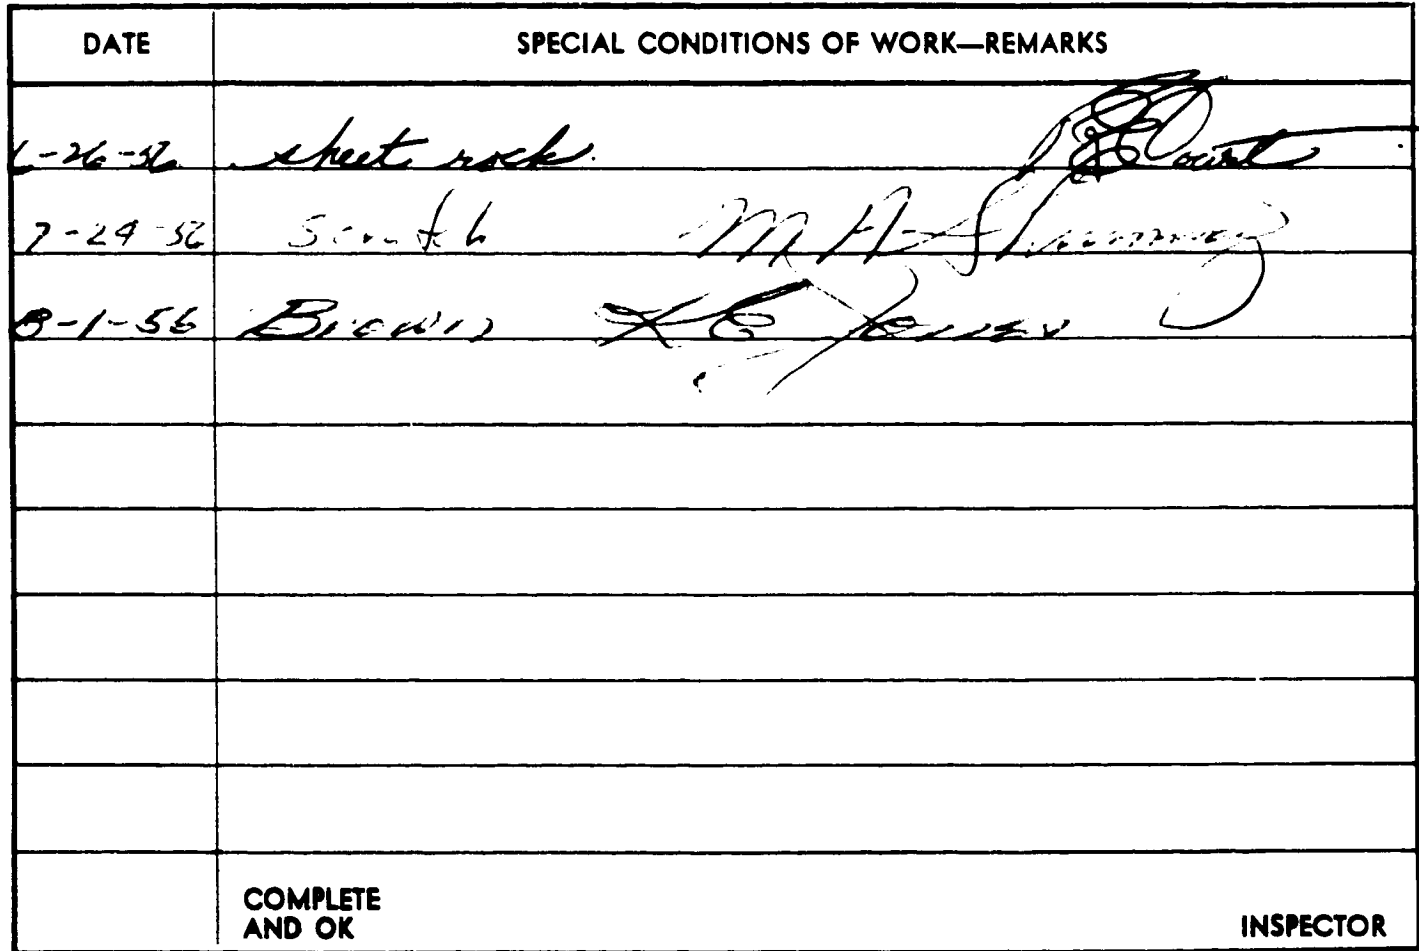 DATE SPECIAL CONDITIONS OF WORK—REMARKS
6-26-56 sheet rock.
7-24-56 Scratch M A
8-1-56 Brown K E Jones
COMPLETE
AND OK INSPECTOR